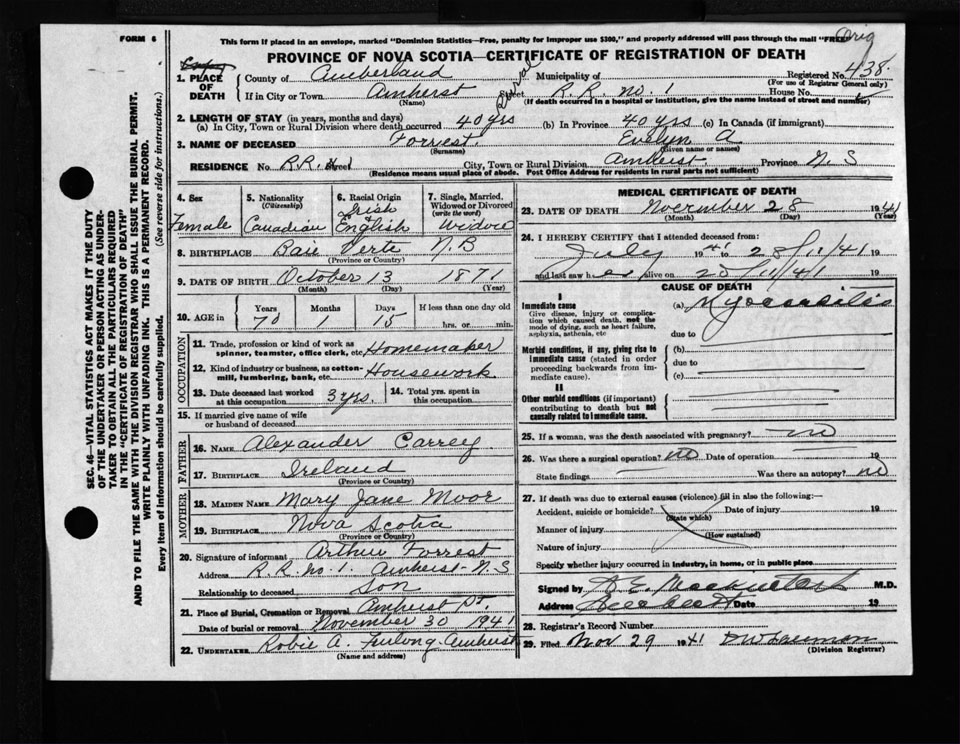 FORM 6
This form if placed in an envelope, marked "Dominion Statistics—Free, penalty for improper use $300," and properly addressed will pass through the mail "FREE"
Orig
PROVINCE OF NOVA SCOTIA—CERTIFICATE OF REGISTRATION OF DEATH
1. PLACE OF DEATH
County of Cumberland Municipality of Registered No. 438
(For use of Registrar General only)
If in City or Town Amherst Street R.R. no. 1 House No.
(Name) (If death occurred in a hospital or institution, give the name instead of street and number)
2. LENGTH OF STAY (in years, months and days)
(a) In City, Town or Rural Division where death occurred 40 yrs (b) In Province 40 yrs (c) In Canada (if immigrant)
3. NAME OF DECEASED Forrest. Evelyn A
(Surname) (Given name or names)
RESIDENCE No. R.R. #1 Street City, Town or Rural Division Amherst. Province N.S
(Residence means usual place of abode. Post Office Address for residents in rural parts not sufficient)
4. Sex 5. Nationality (Citizenship) 6. Racial Origin 7. Single, Married, Widowed or Divorced (write the word)
Female Canadian Irish & English Widow
8. BIRTHPLACE Baie Verte N.B
(Province or Country)
9. DATE OF BIRTH October 13 1871
(Month) (Day) (Year)
10. AGE in Years Months Days If less than one day old
70 1 15 hrs. or min.
OCCUPATION
11. Trade, profession or kind of work as spinner, teamster, office clerk, etc. Homemaker
12. Kind of industry or business, as cotton-mill, lumbering, bank, etc. Housework
13. Date deceased last worked at this occupation 3 yrs. 14. Total yrs. spent in this occupation
15. If married give name of wife or husband of deceased
FATHER
16. NAME Alexander Carrey
17. BIRTHPLACE Ireland
(Province or Country)
MOTHER
18. MAIDEN NAME Mary Jane Moor
19. BIRTHPLACE Nova Scotia
(Province or Country)
20. Signature of informant Arthur Forrest
Address R.R. no. 1. Amherst - N.S
Relationship to deceased Son
21. Place of Burial, Cremation or Removal Amherst Pt.
Date of burial or removal November 30 1941
22. UNDERTAKER Robie A. Furlong Amherst
(Name and address)
MEDICAL CERTIFICATE OF DEATH
23. DATE OF DEATH November 28 1941
(Month) (Day) (Year)
24. I HEREBY CERTIFY that I attended deceased from:
July 1941 to 28/11/41 19
and last saw her alive on 20/11/41 19
CAUSE OF DEATH
I
Immediate cause (a) Myocarditis
Give disease, injury or complication which caused death, not the mode of dying, such as heart failure, asphyxia, asthenia, etc due to
Morbid conditions, if any, giving rise to immediate cause (stated in order proceeding backwards from immediate cause). (b)
due to
(c)
II
Other morbid conditions (if important) contributing to death but not causally related to immediate cause.
25. If a woman, was the death associated with pregnancy? no
26. Was there a surgical operation? no Date of operation 19
State findings Was there an autopsy? no
27. If death was due to external causes (violence) fill in also the following:—
Accident, suicide or homicide? Date of injury 19
(State which)
Manner of injury
(How sustained)
Nature of injury
Specify whether injury occurred in industry, in home, or in public place
Signed by M.D.
Address Date 19
28. Registrar's Record Number
29. Filed Nov 29 1941
(Division Registrar)
SEC. 46—VITAL STATISTICS ACT MAKES IT THE DUTY
OF THE UNDERTAKER OR PERSON ACTING AS UNDER-
TAKER TO OBTAIN ALL THE PARTICULARS REQUIRED
IN THE "CERTIFICATE OF REGISTRATION OF DEATH"
AND TO FILE THE SAME WITH THE DIVISION REGISTRAR WHO SHALL ISSUE THE BURIAL PERMIT.
WRITE PLAINLY WITH UNFADING INK. THIS IS A PERMANENT RECORD.
Every item of information should be carefully supplied. (See reverse side for instructions.)